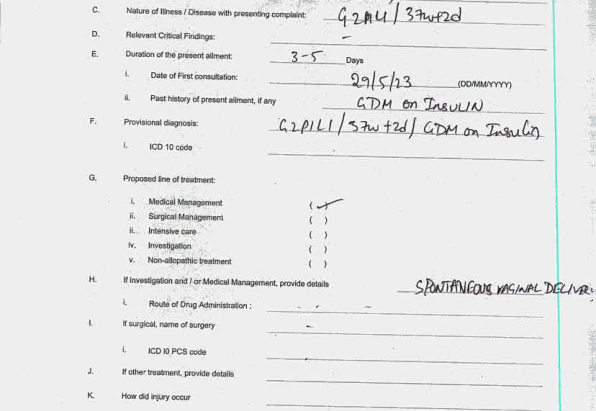 C. Nature of Illness / Disease with presenting complaint: G2A1L1 / 37w+2d
D. Relevant Critical Findings: -
E. Duration of the present ailment: 3-5 Days
i. Date of First consultation: 29/5/23 (DD/MM/YYYY)
ii. Past history of present ailment, if any GDM on INSULIN
F. Provisional diagnosis: G2P1L1 / 37w+2d / GDM on Insulin
i. ICD 10 code
G. Proposed line of treatment:
i. Medical Management (✓)
ii. Surgical Management ( )
ii. Intensive care ( )
iv. Investigation ( )
v. Non-allopathic treatment ( )
H. If investigation and / or Medical Management, provide details SPONTANEOUS VAGINAL DELIVER
i. Route of Drug Administration : - - -
I. If surgical, name of surgery -
i. ICD I0 PCS code
J. If other treatment, provide details
K. How did injury occur